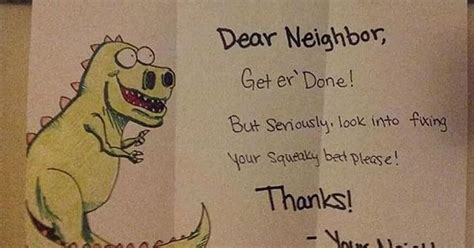 Dear Neighbor,
Get er' Done!
But Seriously, look into fixing
your squeaky bed please!
Thanks!
- Your